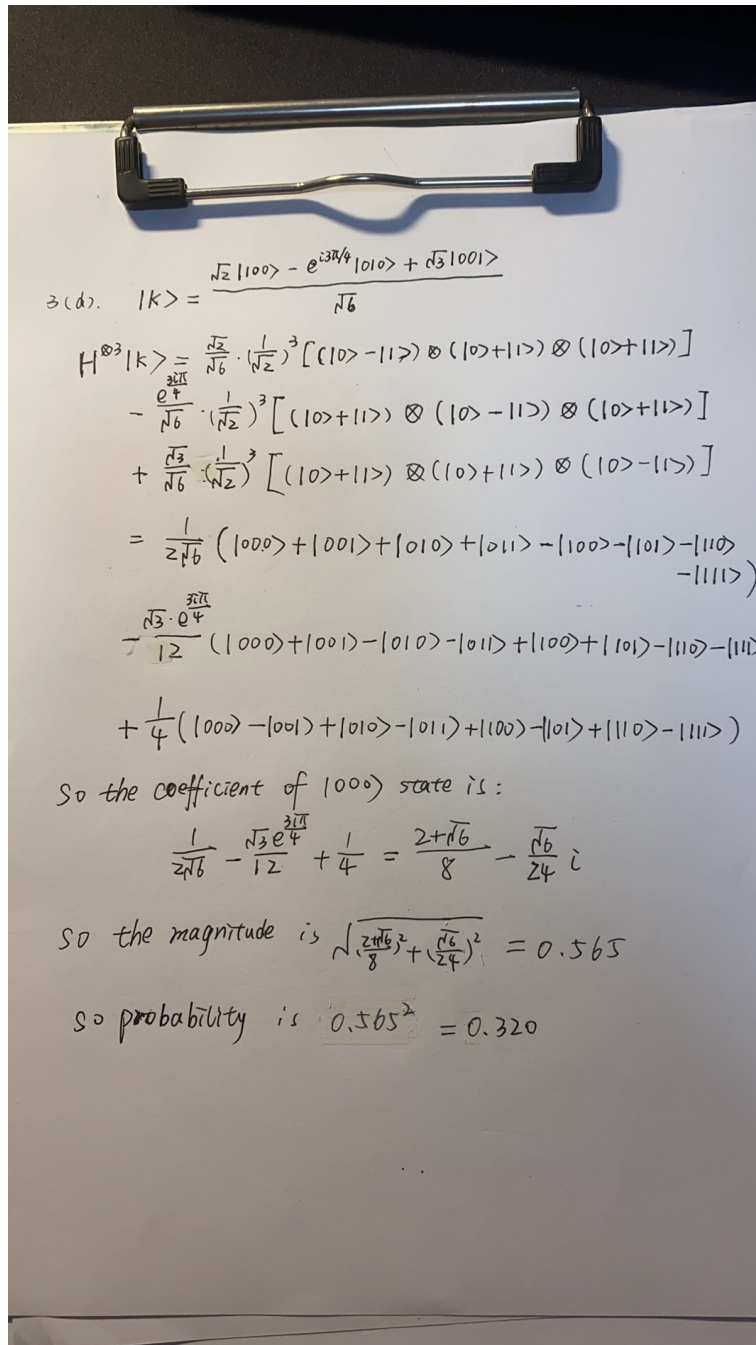 3(d). |k> = (√2|100> - e^{i3π/4}|010> + √3|001>) / √6
H^{⊗3}|k> = √2/√6 · (1/√2)^3 [(|0>-|1>) ⊗ (|0>+|1>) ⊗ (|0>+|1>)]
- e^{3iπ/4}/√6 · (1/√2)^3 [(|0>+|1>) ⊗ (|0>-|1>) ⊗ (|0>+|1>)]
+ √3/√6 · (1/√2)^3 [(|0>+|1>) ⊗ (|0>+|1>) ⊗ (|0>-|1>)]
= 1/(2√6) (|000>+|001>+|010>+|011>-|100>-|101>-|110>
-|111>)
- √3·e^{3iπ/4}/12 (|000>+|001>-|010>-|011>+|100>+|101>-|110>-|111>
+ 1/4 (|000>-|001>+|010>-|011>+|100>-|101>+|110>-|111>)
So the coefficient of |000> state is:
1/(2√6) - √3e^{3iπ/4}/12 + 1/4 = (2+√6)/8 - √6/24 i
So the magnitude is √(((2+√6)/8)^2 + (√6/24)^2) = 0.565
So probability is 0.565^2 = 0.320